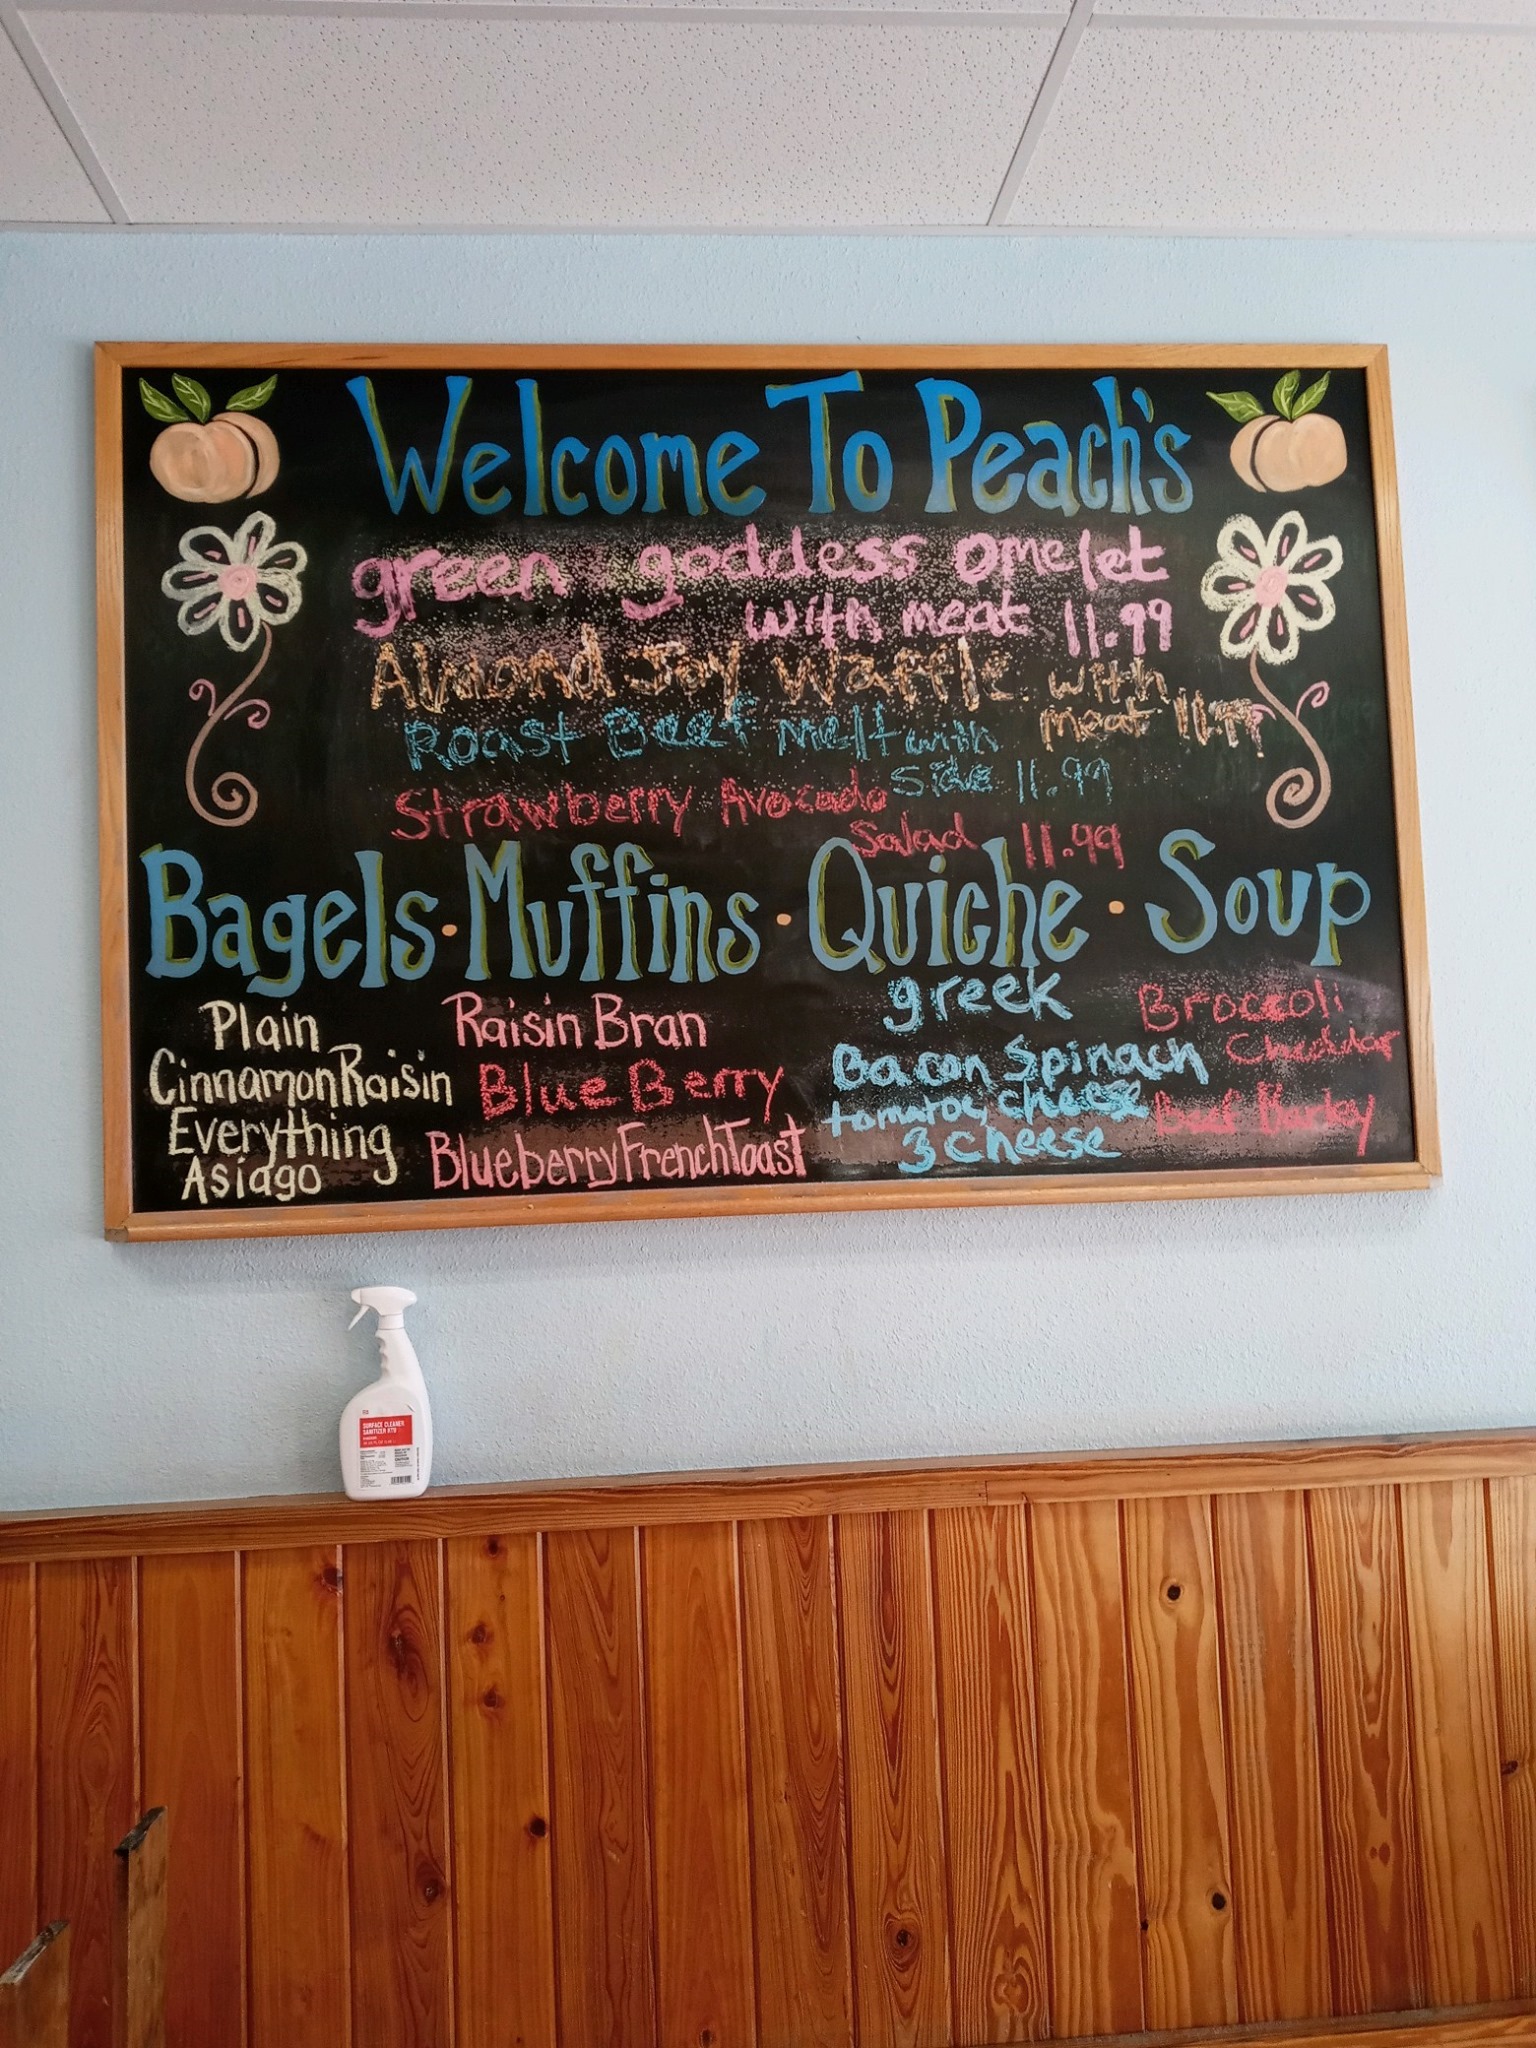 Welcome To Peach's
green goddess omelet
with meat 11.99
Almond Joy Waffle with
meat 11.99
Roast Beef Melt with
Side 11.99
Strawberry Avocado
Salad 11.99
Bagels · Muffins · Quiche · Soup
Plain
Cinnamon Raisin
Everything
Asiago
Raisin Bran
Blue Berry
Blueberry French Toast
greek
Bacon Spinach
tomatoe, cheese
3 cheese
Broccoli
Cheddar
Beef Barley
SURFACE CLEANER
SANITIZER RTU